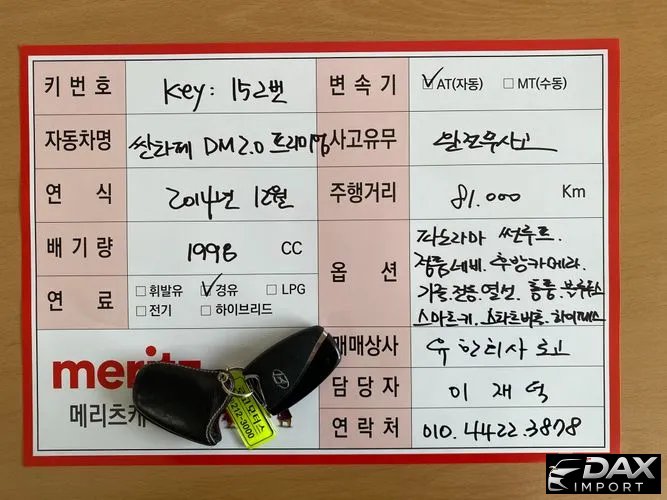 키번호 Key: 152번 변속기 ☑ AT(자동) ☐ MT(수동)
자동차명 싼타페 DM 2.0 프리미엄 사고유무 완전무사고
연 식 2014년 12월 주행거리 81.000 Km
배기량 1998 CC
옵 션 파노라마 썬루프.
정품네비. 후방카메라.
가죽.전동.열선. 통풍. 블루투스
스마트키. 스타트버튼. 하이패스
연 료 ☐ 휘발유 ☑ 경유 ☐ LPG
☐ 전기 ☐ 하이브리드
meritz 매매상사
메리츠캐
담당자 이재덕
모터스
212-3000
연락처 010.4422.3878
DAX
IMPORT